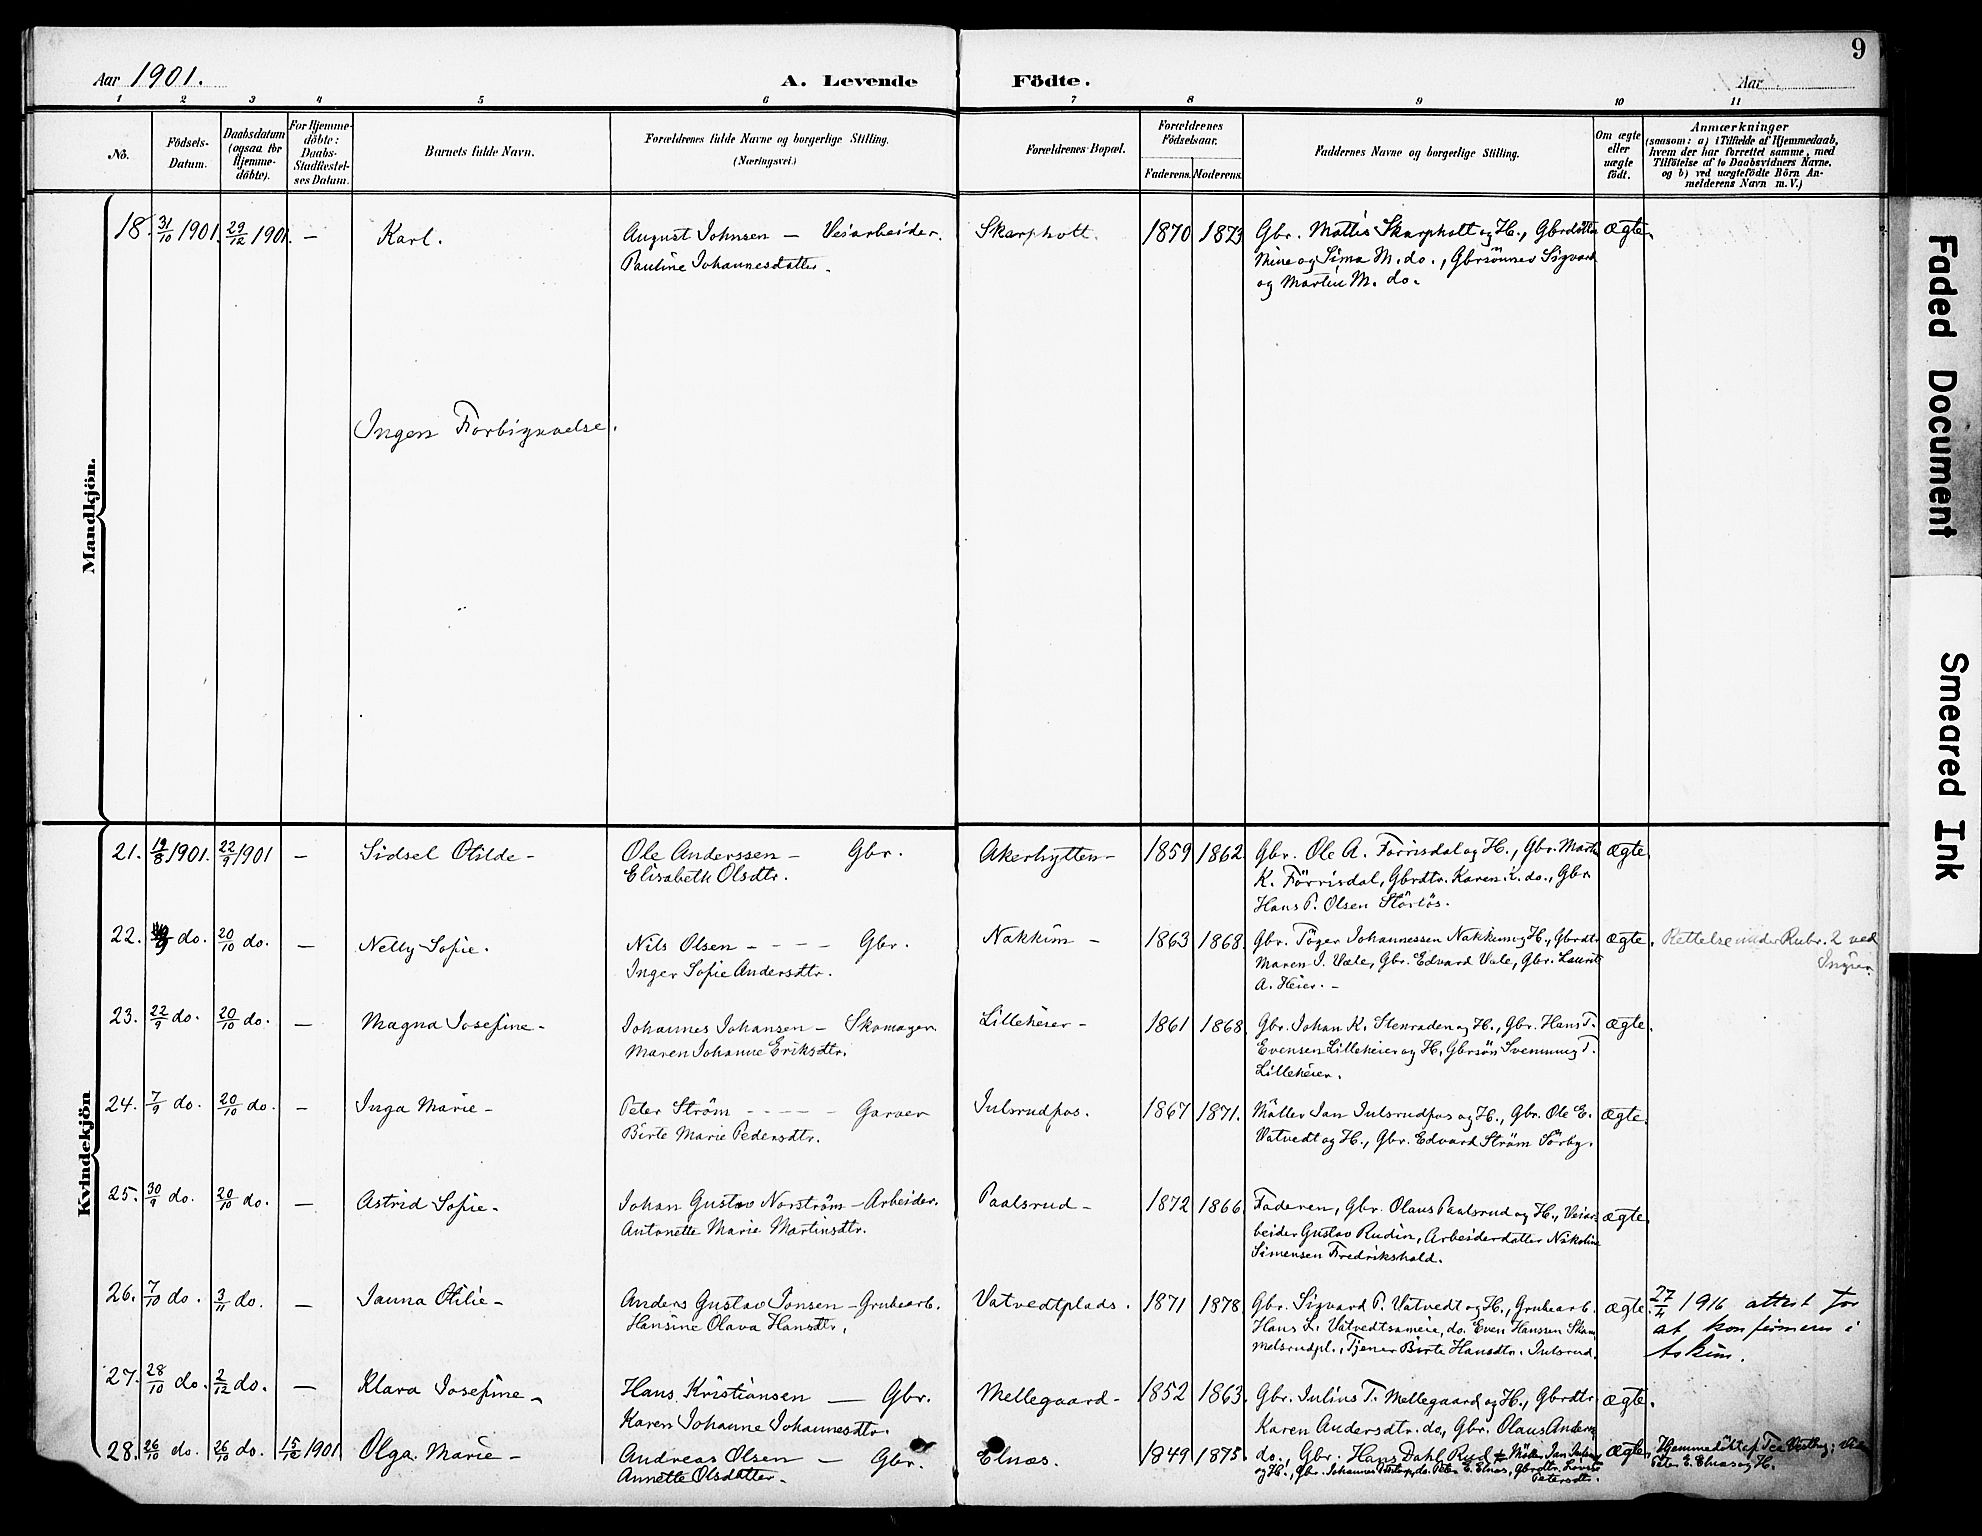 9
Aar 1901. A. Levende Födte. Aar
1 2 3 4 5 6 7 8 9 10 11
No. Födsels-Datum. Daabsdatum (ogsaa for Hjemme-döbte). For Hjemme-döbte: Daabs-Stadfæstel-ses Datum. Barnets fulde Navn. Forældrenes fulde Navne og borgerlige Stilling. (Næringsvei.) Forældrenes Bopæl. Forældrenes Födselsaar. Faderens. Moderens. Faddernes Navne og borgerlige Stilling. Om ægte eller uægte födt. Anmærkninger (saasom: a) i Tilfælde af Hjemmedaab, hvem der har forrettet samme, med Tilföielse af to Daabsvidners Navne, og b) ved uægtefödte Börn An-melderens Navn m. V.)
Mandkjön.
18. 31/10 1901. 29/12 1901. – Karl. August Johnsen – Veiarbeider. Skarpholt. 1870 1873 Gbr. Mattis Skarpholt og H., Gbrdöttre ægte.
Pauline Johannesdatter. Mina og Sima M. do., Gbrsönner Sigvart
og Martin M. do.
Ingen Forbigaaelse.
Kvindekjön
21. 19/8 1901. 22/9 1901 – Sidsel Otilde – Ole Anderssen – Gbr. Akerhytten – 1859 1862 Gbr. Ole A. Forrisdal og H., Gbr. Martin ægte.
Elisabeth Olsdtr. K. Förrisdal, Gbrdtr. Karen K. do., Gbr.
Hans P. Olsen Störlös.
22. 9 do. 20/10 do. – Nelly Sofie. Nils Olsen – – – – Gbr. Nakkim – 1863 1868. Gbr. Töger Johannessen Nakkim og H., Gbrdtr. ægte. Rettelse under Rubr. 2 ved
Inger Sofie Andersdtr. Maren J. Vale, Gbr. Edvard Vale, Gbr. Laurits
A. Heier. –
23. 22/9 do. 20/10 do. – Magna Josefine – Johannes Johansen – Skomager. Lilleheier – 1861 1868. Gbr. Johan K. Stenraden og H., Gbr. Hans T. ægte.
Maren Johanne Eriksdtr. Evensen Lilleheier og H, Gbrsön Svennung T.
Lilleheier.
24. 7/9 do. 20/10 do. – Inga Marie – Peter Ström – – – – – Garver Julsrudfos. 1867 1871. Möller Jan Julsrudfos og H., Gbr. Ole E. ægte.
Birte Marie Pedersdtr. Vatvedt og H., Gbr. Edvard Ström Sörby.
25. 30/9 do. 20/10 do. – Astrid Sofie – Johan Gustav Norström – Arbeider. Paalsrud – 1872 1866. Faderen, Gbr. Olaus Paalsrud og H., Veiar- ægte.
Antonette Marie Martinsdtr. beider Gustav Rudin, Arbeiderdatter Nikoline
Simensen Fredrikshald.
26. 7/10 do. 3/11 do. – Janna Otilie – Anders Gustav Jonsen – Grubearb. Vatvedtplads. 1871 1878. Gbr. Sigvard P. Vatvedt og H., Grubearb. ægte. 27/4 1916 attest for
Hansine Olava Hansdtr. Hans L. Vatvedtsameie, do. Even Hanssen Skam at konfirmeres i
melsrudpl., Tjener Birte Hansdtr. Julsrud. Askim.
27. 28/10 do. 2/12 do. – Klara Josefine – Hans Kristiansen – Gbr. Mellegaard – 1852 1863. Gbr. Julius T. Mellegaard og H., Gbrdtr. ægte.
Karen Johanne Johannesdtr. Karen Andersdtr. do, Gbr. Olaus Anders.
28. 26/10 do. 26/10 do. 15/12 1901. Olga Marie – Andreas Olsen – Gbr. Elnæs. 1849 1875. do., Gbr. Hans Dahl Ryd Möller Jan Julsrud ægte. Hjemmedöbt af Tea Vestby;
Annette Olsdatter – og H., Gbr. Johannes do. Peter E. Elnæs, Gbrdtr. Peter E. Elnæs og H.
Petersdtr.
Faded Document
Smeared Ink